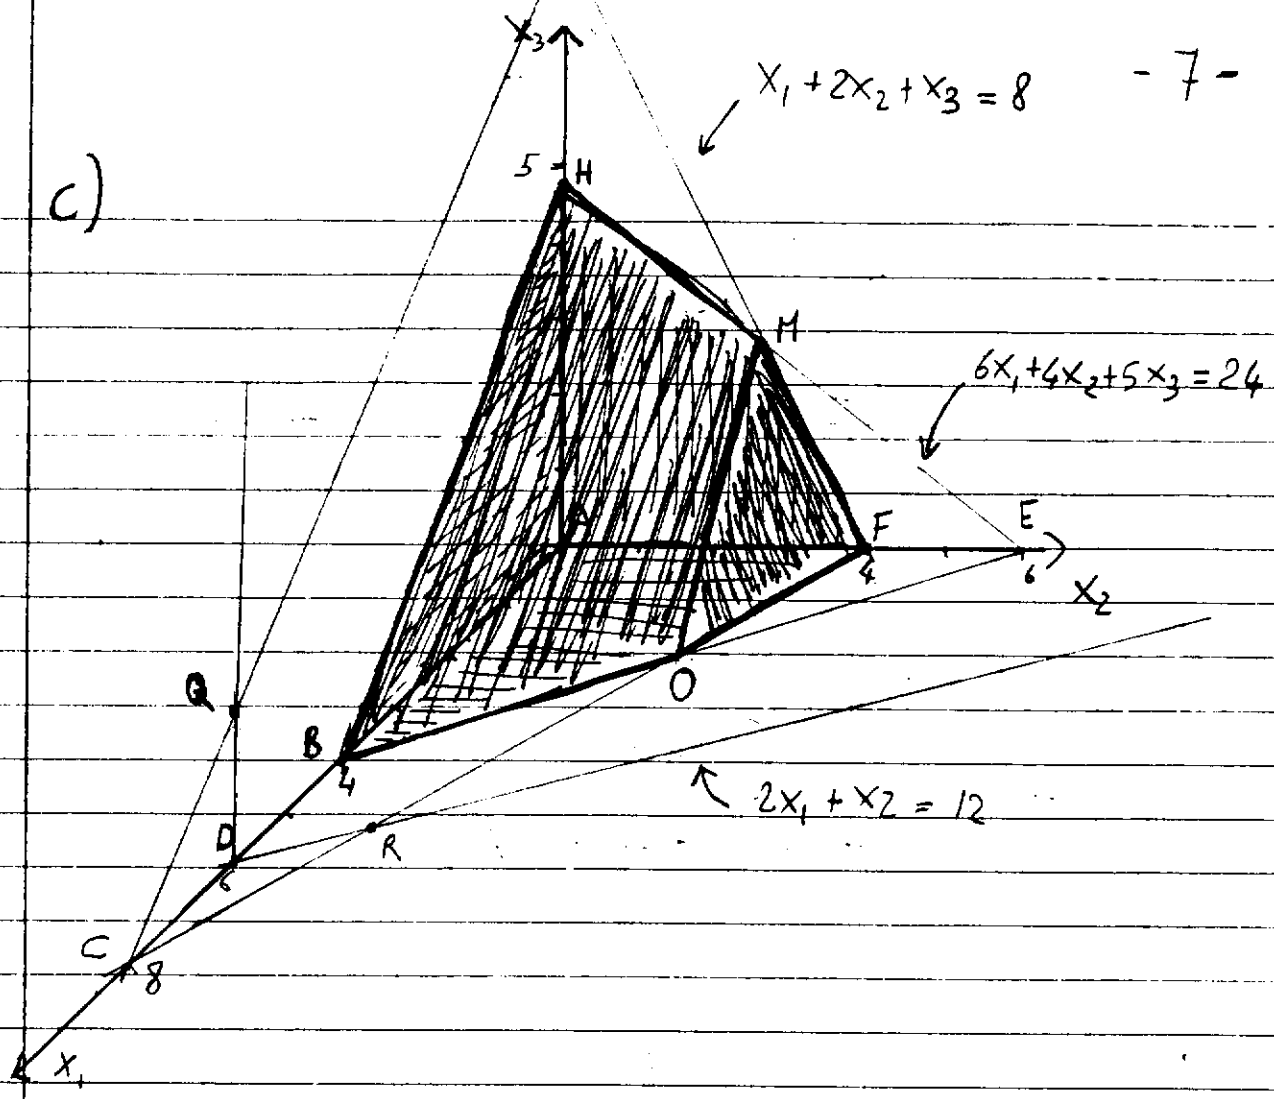 X₃
X₁ + 2X₂ + X₃ = 8
- 7 -
C)
5
H
M
6X₁ + 4X₂ + 5X₃ = 24
A
F
E
4
6
X₂
Q
O
B
4
2X₁ + X₂ = 12
D
R
6
C
8
X₁